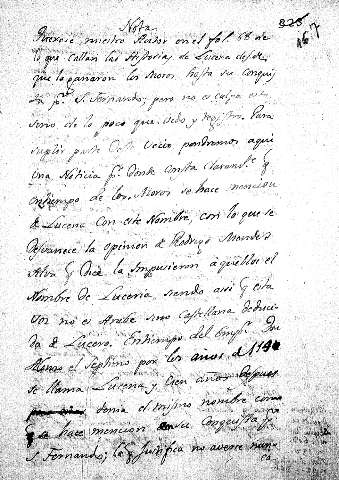 Nota.
323
167
nuestro Autor en el fol. 58 de
lo que callan las Historias de Lucena desde
que la ganaron los Moros hasta su Conqui
Sn. Fernando; pero no es culpa
sino de lo poco que vido y registró. Para
suplir parte este vacio pondremos aqui
una Noticia pr. donde consta claramte. q
en tiempo de los Moros se hace mencion
de Lucena con este Nombre, con lo que se
desvanece la opinion de Rodrigo Mendez
Silva q dice la impusieron aquellos el
Nombre de Lucena siendo assi q esta
voz no es Arabe sino Castellana deduci
da de Lucero. En tiempo del Emp.
el septimo por los años de 114
se llama Lucena y cien años despues
tenia el mismo nombre como
q se hace mencion en su Conquista pr.
S. Fernando; lo q justifica no averse nun
ca